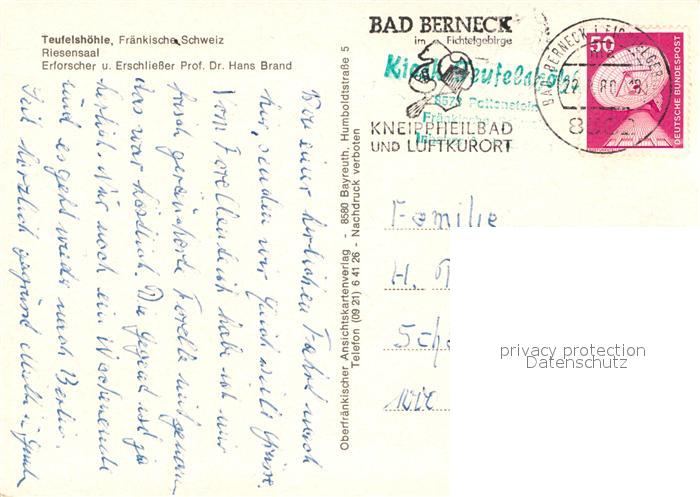 Teufelshöhle, Fränkische Schweiz
Riesensaal
Erforscher u. Erschließer Prof. Dr. Hans Brand
BAD BERNECK
im Fichtelgebirge
KNEIPPHEILBAD
UND LUFTKURORT
Kiosk Teufelshöhle
8573 Pottenstein
Fränkische
BAD BERNECK I. FICHTELGEB
80
50
DEUTSCHE BUNDESPOST
Von einer herrlichen Fahrt nach
senden wir Euch viele Grüsse.
Vom Forellenteich habe ich mir
frisch geräucherte Forelle mitgenommen
das war köstlich. Die Gegend ist ja
herrlich. Nur noch ein Wochenende
und es geht wieder nach Berlin.
Seid herzlich gegrüsst
Oberfränkischer Ansichtskartenverlag - 8580 Bayreuth, Humboldtstraße 5
Telefon (09 21) 6 41 26 - Nachdruck verboten
Familie
H.
privacy protection
Datenschutz